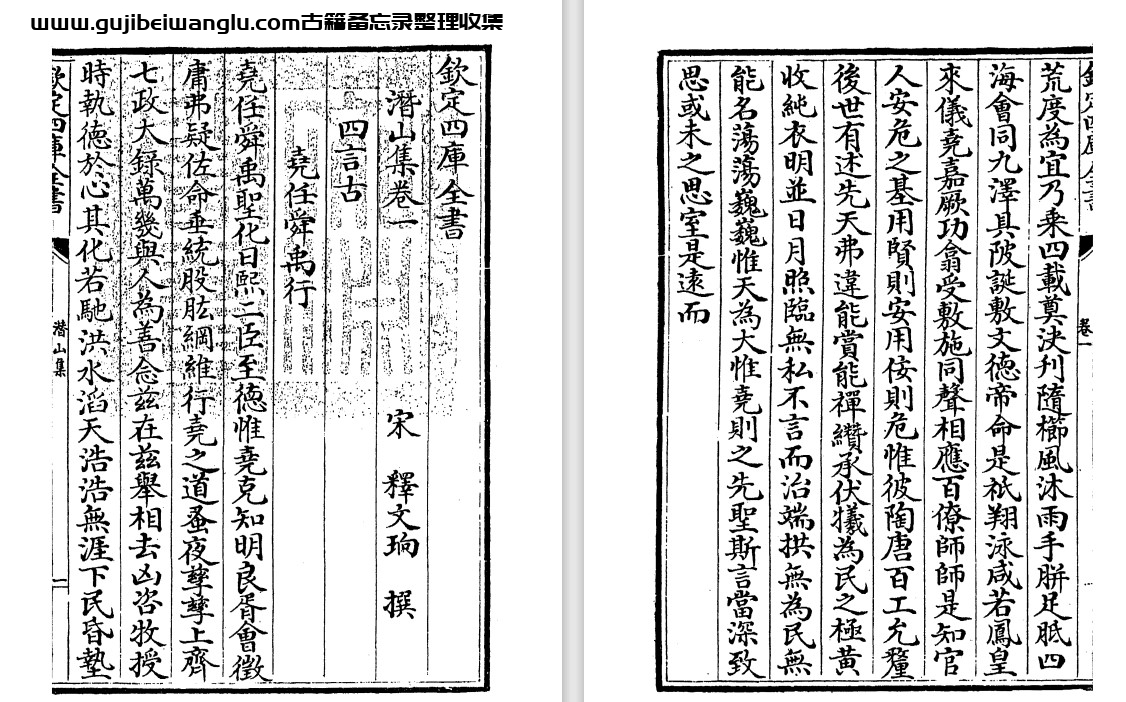 www.gujibeiwanglu.com古籍备忘录整理收集
欽定四庫全書
潛山集卷一 宋 釋文珦 撰
四言古
堯任舜禹行
堯任舜禹聖化日熙二臣至德惟堯克知明良胥會徵
庸弗疑佐命垂統股肱綱維行堯之道蚤夜孳孳上齊
七政大錄萬幾與人為善念兹在兹舉相去凶咨牧授
時執德於心其化若馳洪水滔天浩浩無涯下民昏墊
欽定四庫全書 潛山集 一
卷一
荒度為宜乃乘四載奠決刋隨櫛風沐雨手胼足胝四
海會同九澤具陂誕敷文德帝命是祇翔泳咸若鳳皇
來儀堯嘉厥功翕受敷施同聲相應百僚師師是知官
人安危之基用賢則安用佞則危惟彼陶唐百工允釐
後世有述先天弗違能賞能禪纘承伏犧為民之極黃
收純衣明並日月照臨無私不言而治端拱無為民無
能名蕩蕩巍巍惟天為大惟堯則之先聖斯言當深致
思或未之思室是遠而